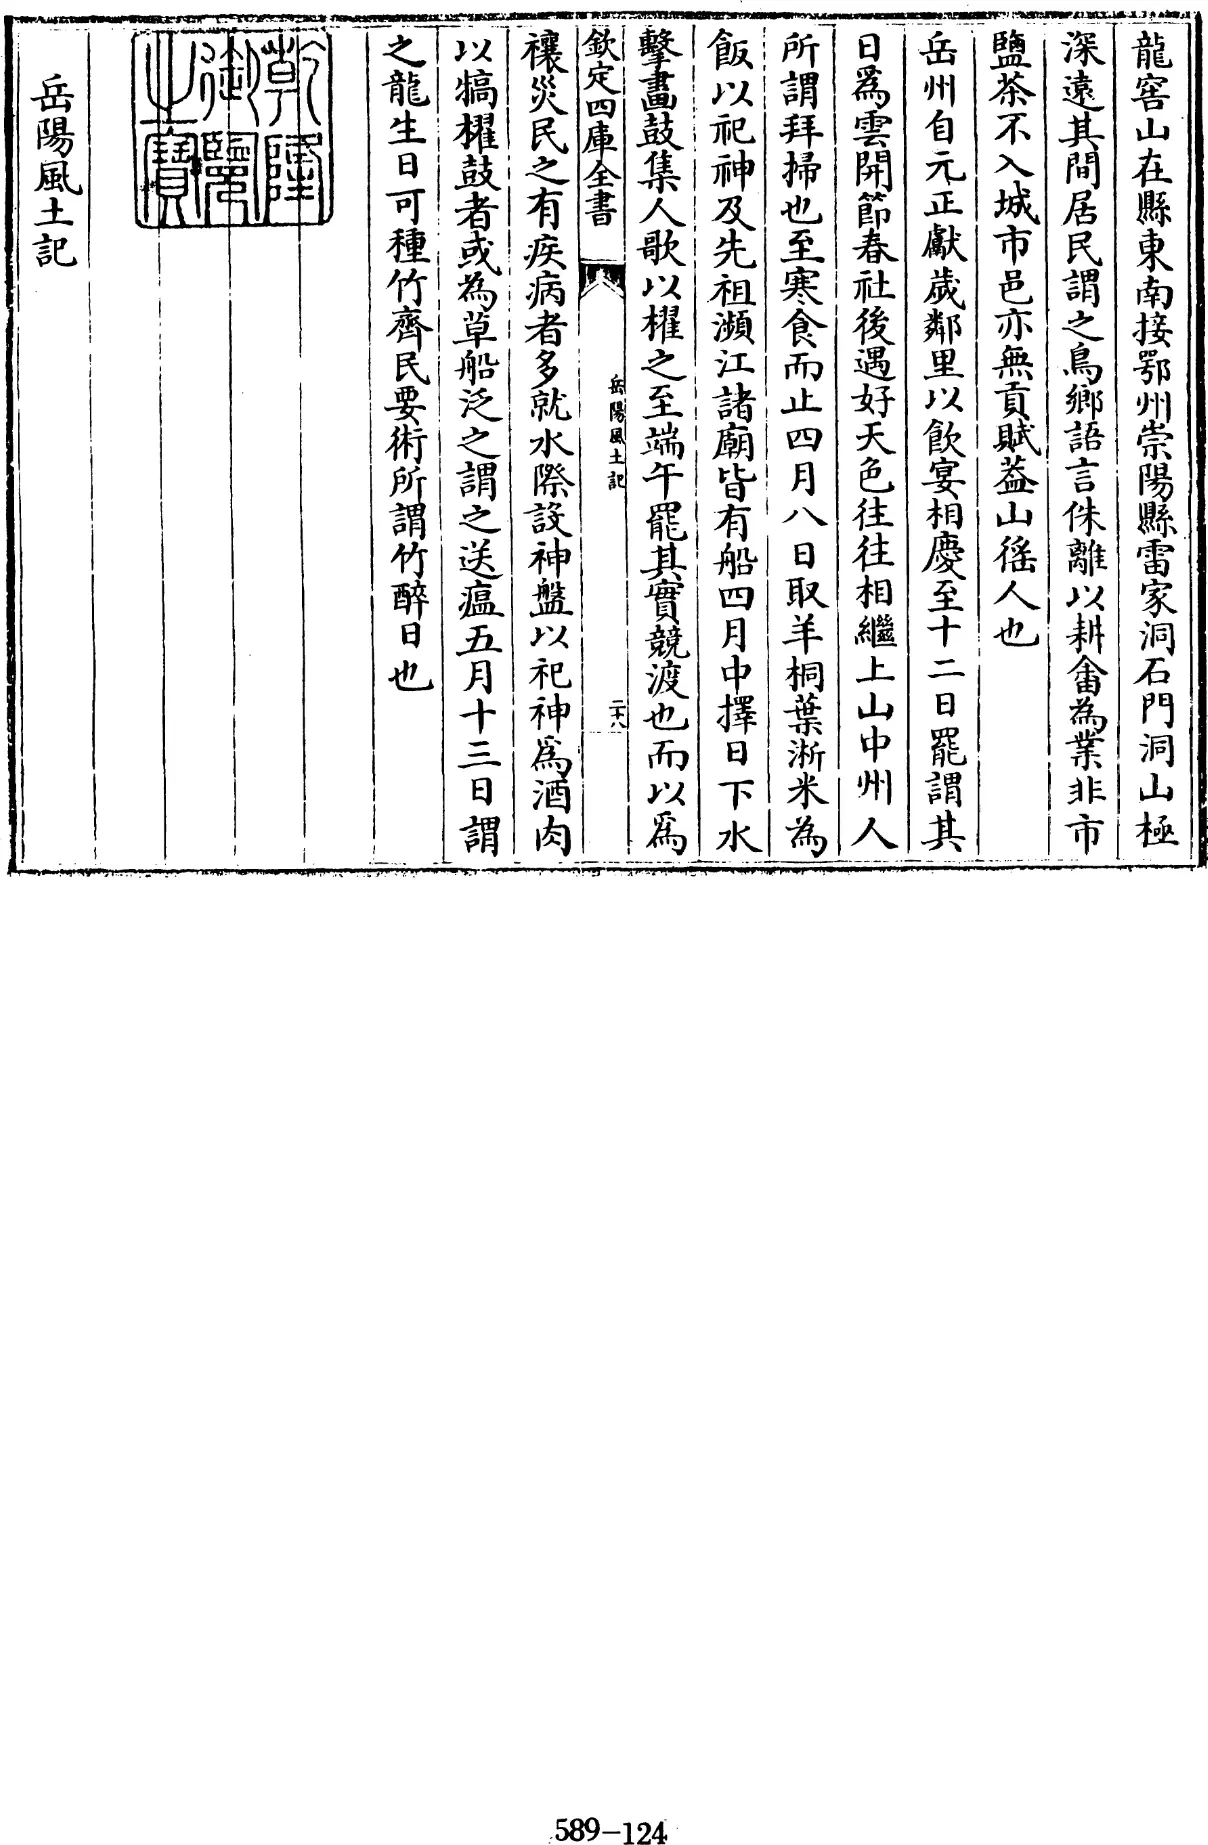 龍窖山在縣東南接鄂州崇陽縣雷家洞石門洞山極
深遠其間居民謂之鳥鄉語言侏離以耕畬為業非市
鹽茶不入城市邑亦無貢賦葢山徭人也
岳州自元正獻歲鄰里以飲宴相慶至十二日罷謂其
日爲雲開節春社後遇好天色往往相繼上山中州人
所謂拜掃也至寒食而止四月八日取羊桐葉淅米為
飯以祀神及先祖瀕江諸廟皆有船四月中擇日下水
擊畫鼓集人歌以櫂之至端午罷其實競渡也而以爲
欽定四庫全書
岳陽風土記
二十八
禳災民之有疾病者多就水際設神盤以祀神爲酒肉
以犒櫂鼓者或為草船泛之謂之送瘟五月十三日謂
之龍生日可種竹齊民要術所謂竹醉日也
乾隆
御覽
之寶
岳陽風土記
589-124